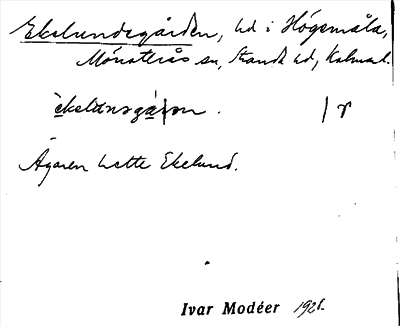 Ekelundsgården, ld i Högsmåla,
Mönsterås sn, Stranda hd, Kalmar l.
èkelunsgá̱ɹɔn. | r
Ägaren hette Ekelund.
Ivar Modéer 1928.